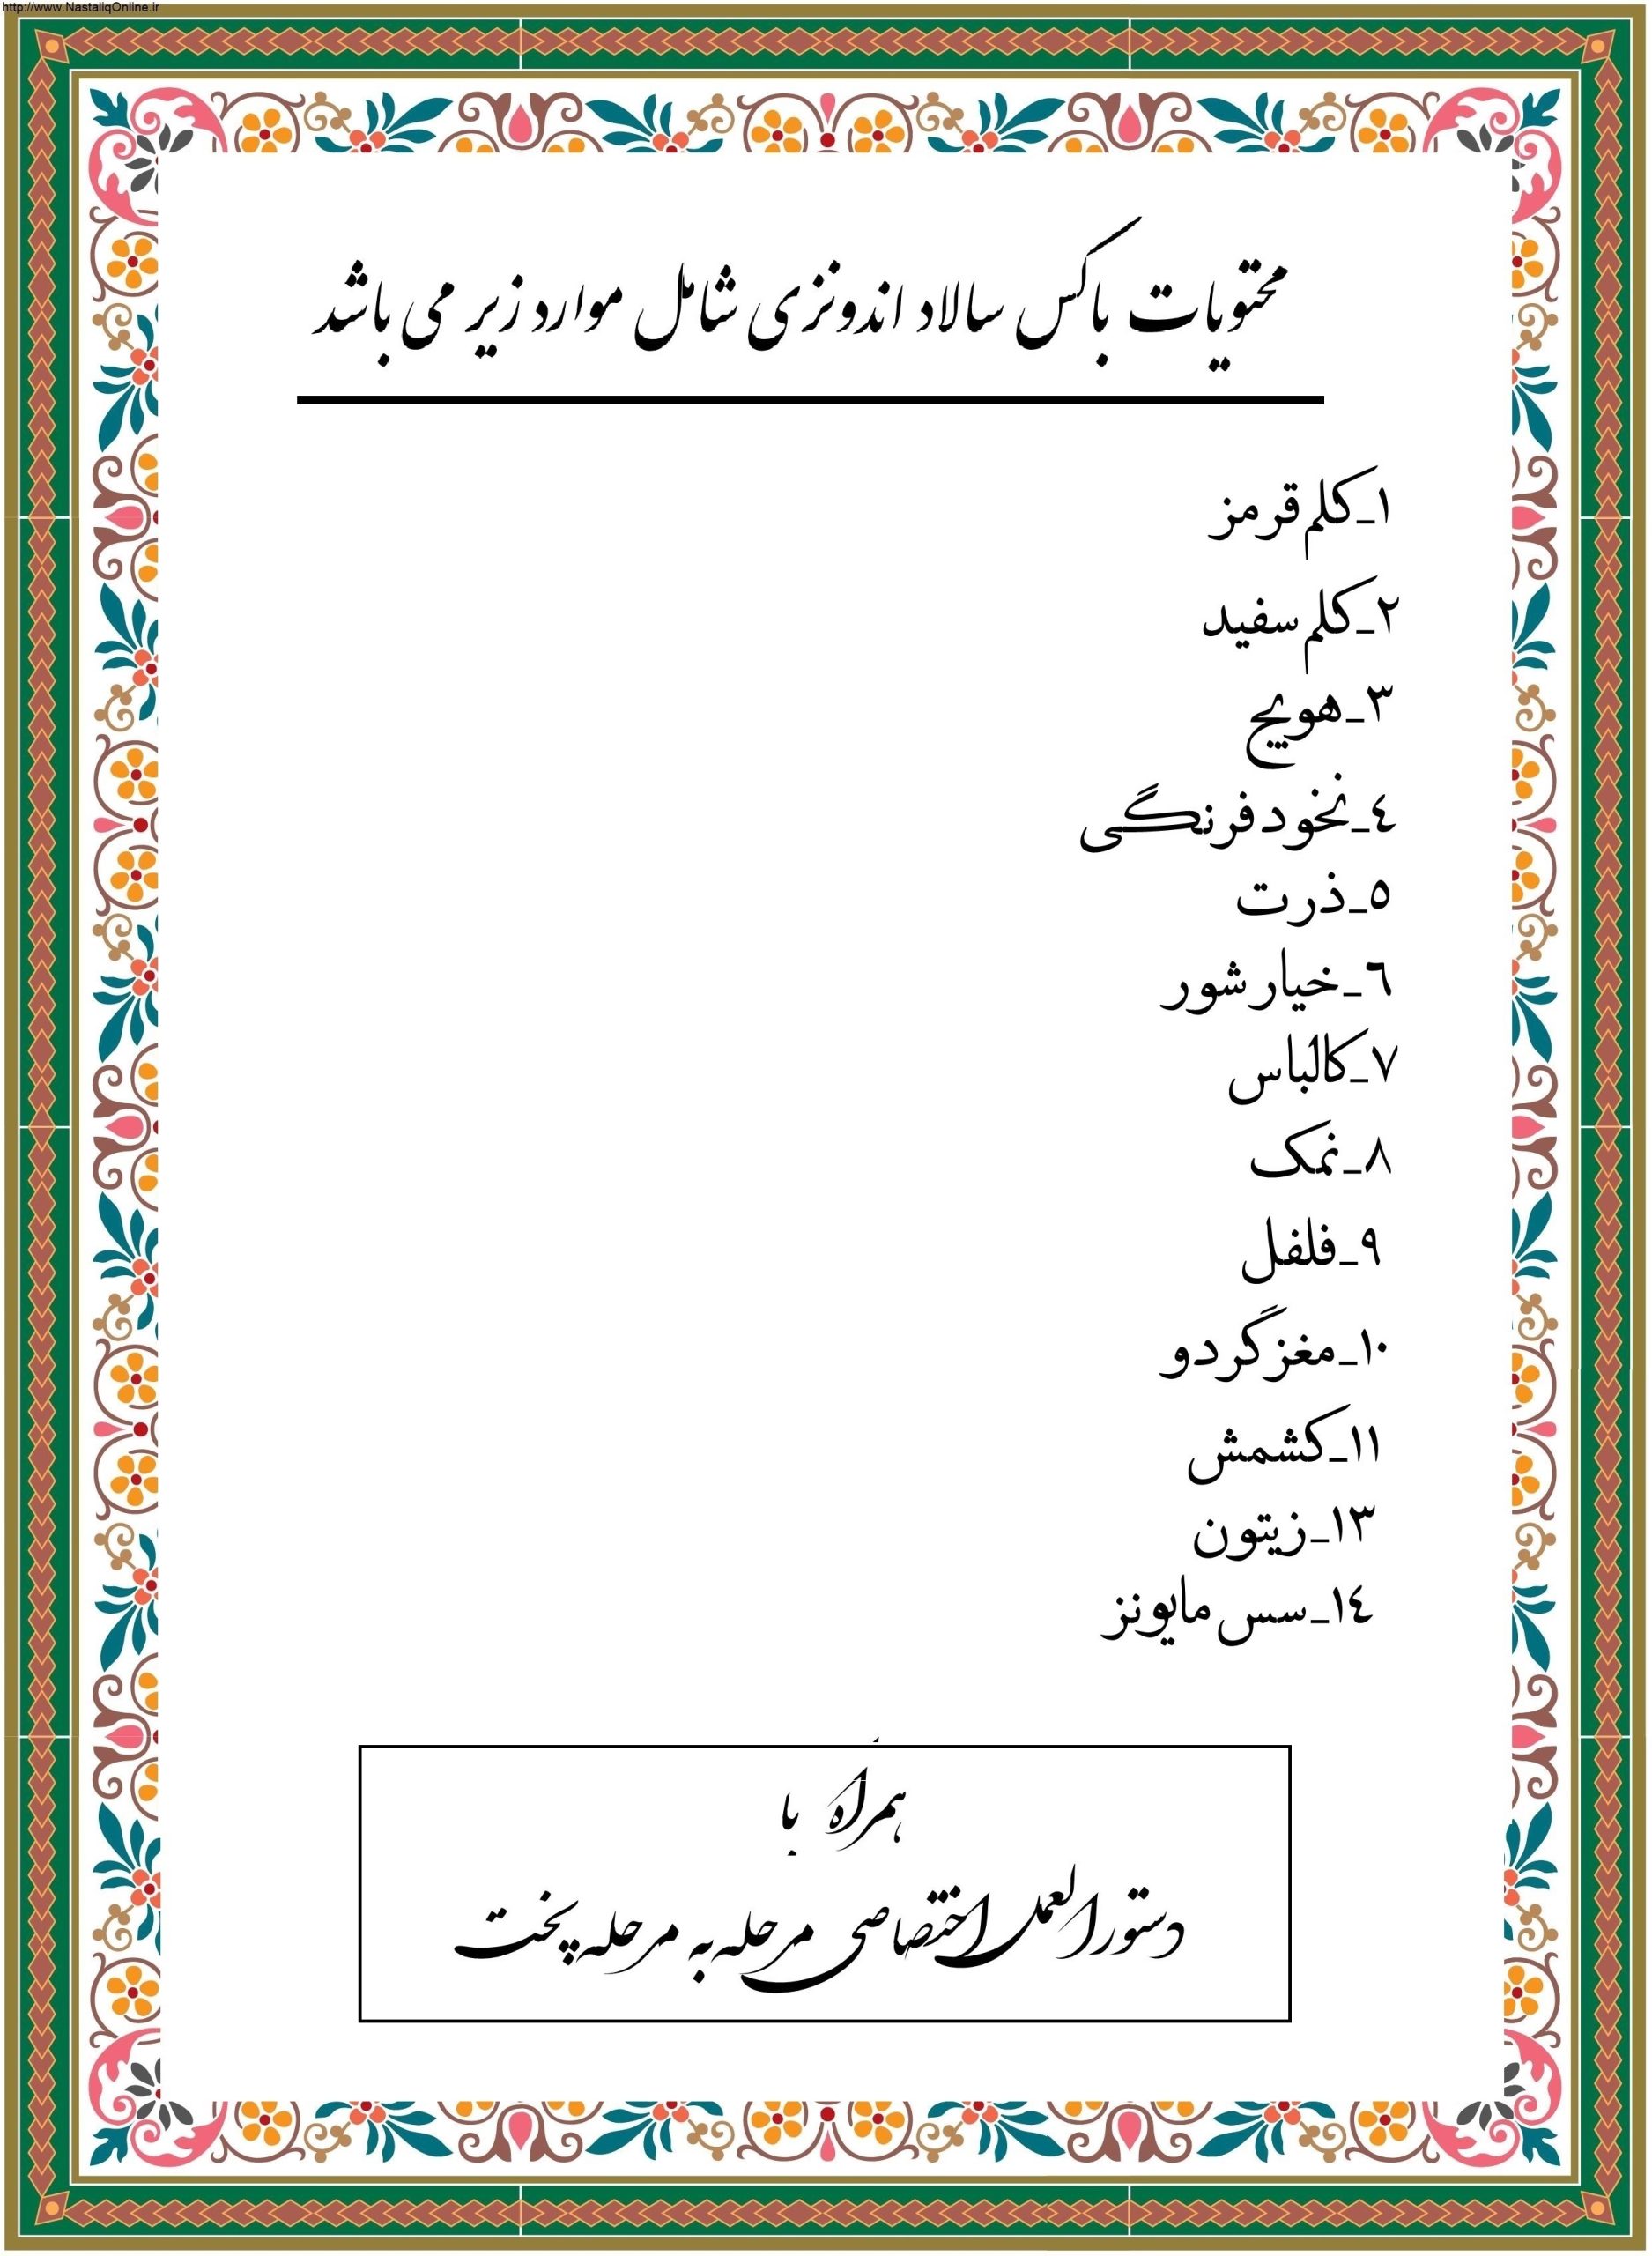 http://www.NastaliqOnline.ir
محتویات باکس سالاد اندونزی شامل موارد زیر می باشد
١_کلم قرمز
٢_کلم سفید
٣_هویج
٤_نخود فرنگی
٥_ذرت
٦_خیار شور
٧_کالباس
٨_نمک
٩_فلفل
١٠_مغز گردو
١١_کشمش
١٣_زیتون
١٤_سس مایونز
همراه با
دستورالعمل اختصاصی مرحله به مرحله پخت